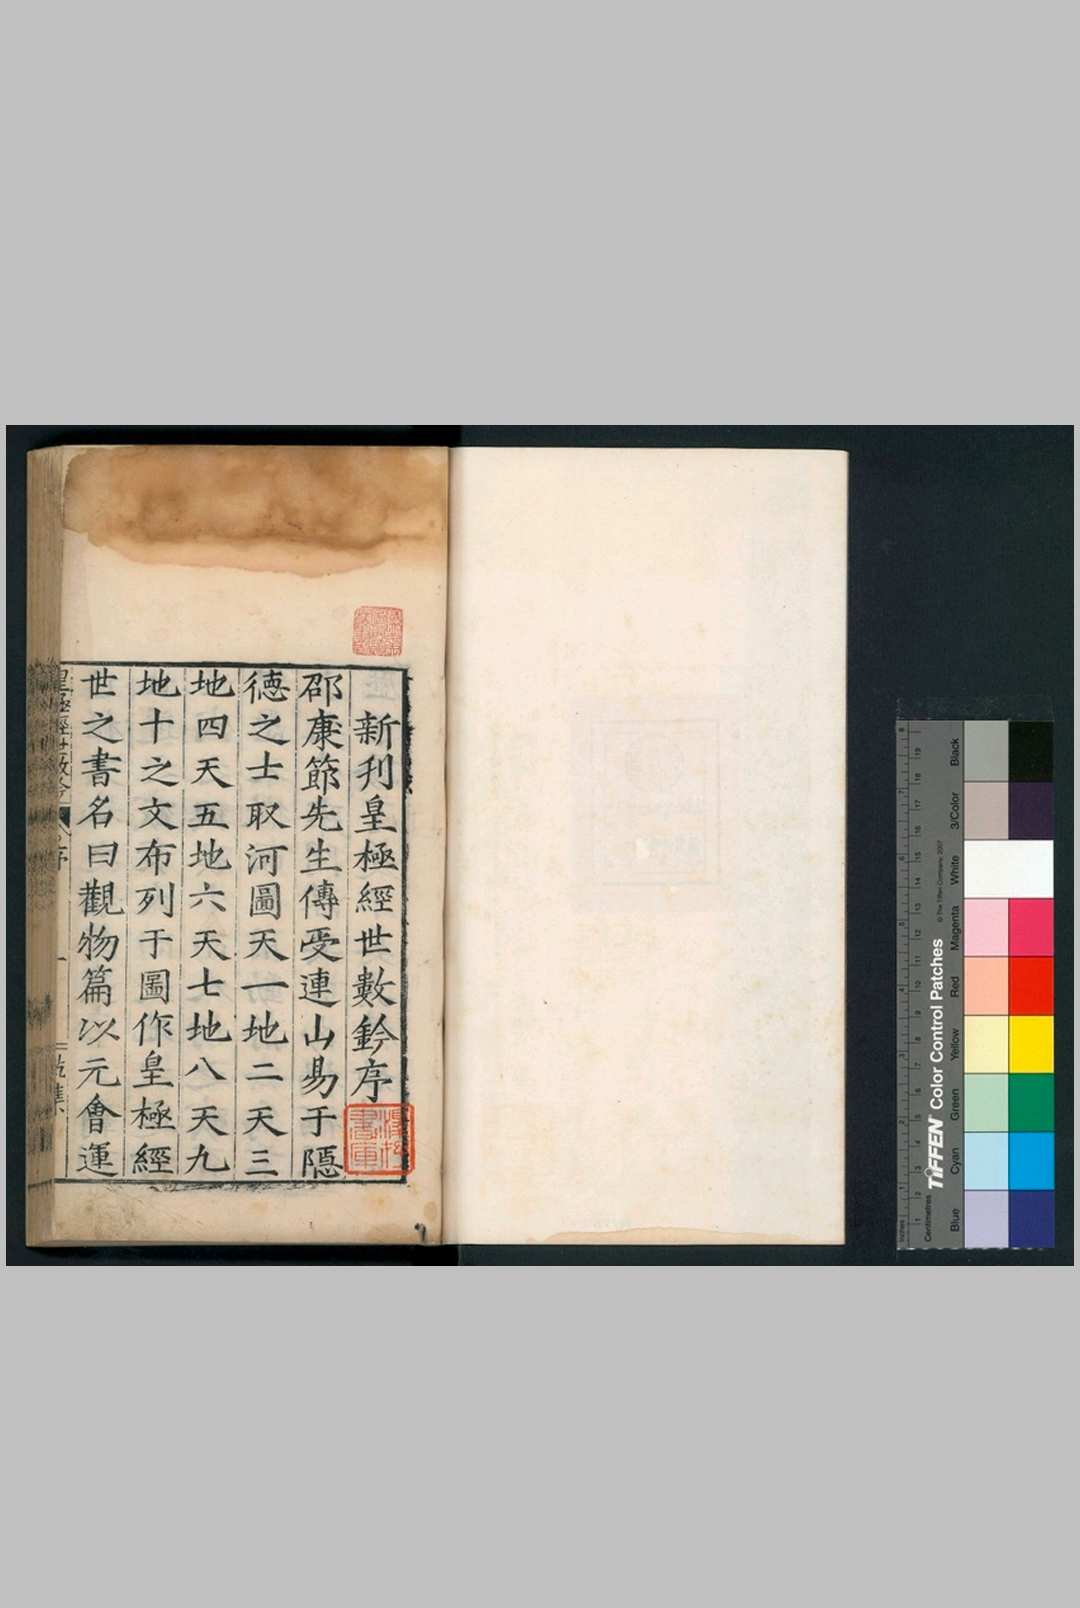 新刊皇極經世數鈐序
邵康節先生傳受連山易于隱
德之士取河圖天一地二天三
地四天五地六天七地八天九
地十之文布列于圖作皇極經
世之書名曰觀物篇以元會運
皇極經世數鈐
序
一
乾集
Inches
Centimetres
TIFFEN Color Control Patches
© The Tiffen Company, 2007
Blue
Cyan
Green
Yellow
Red
Magenta
White
3/Color
Black